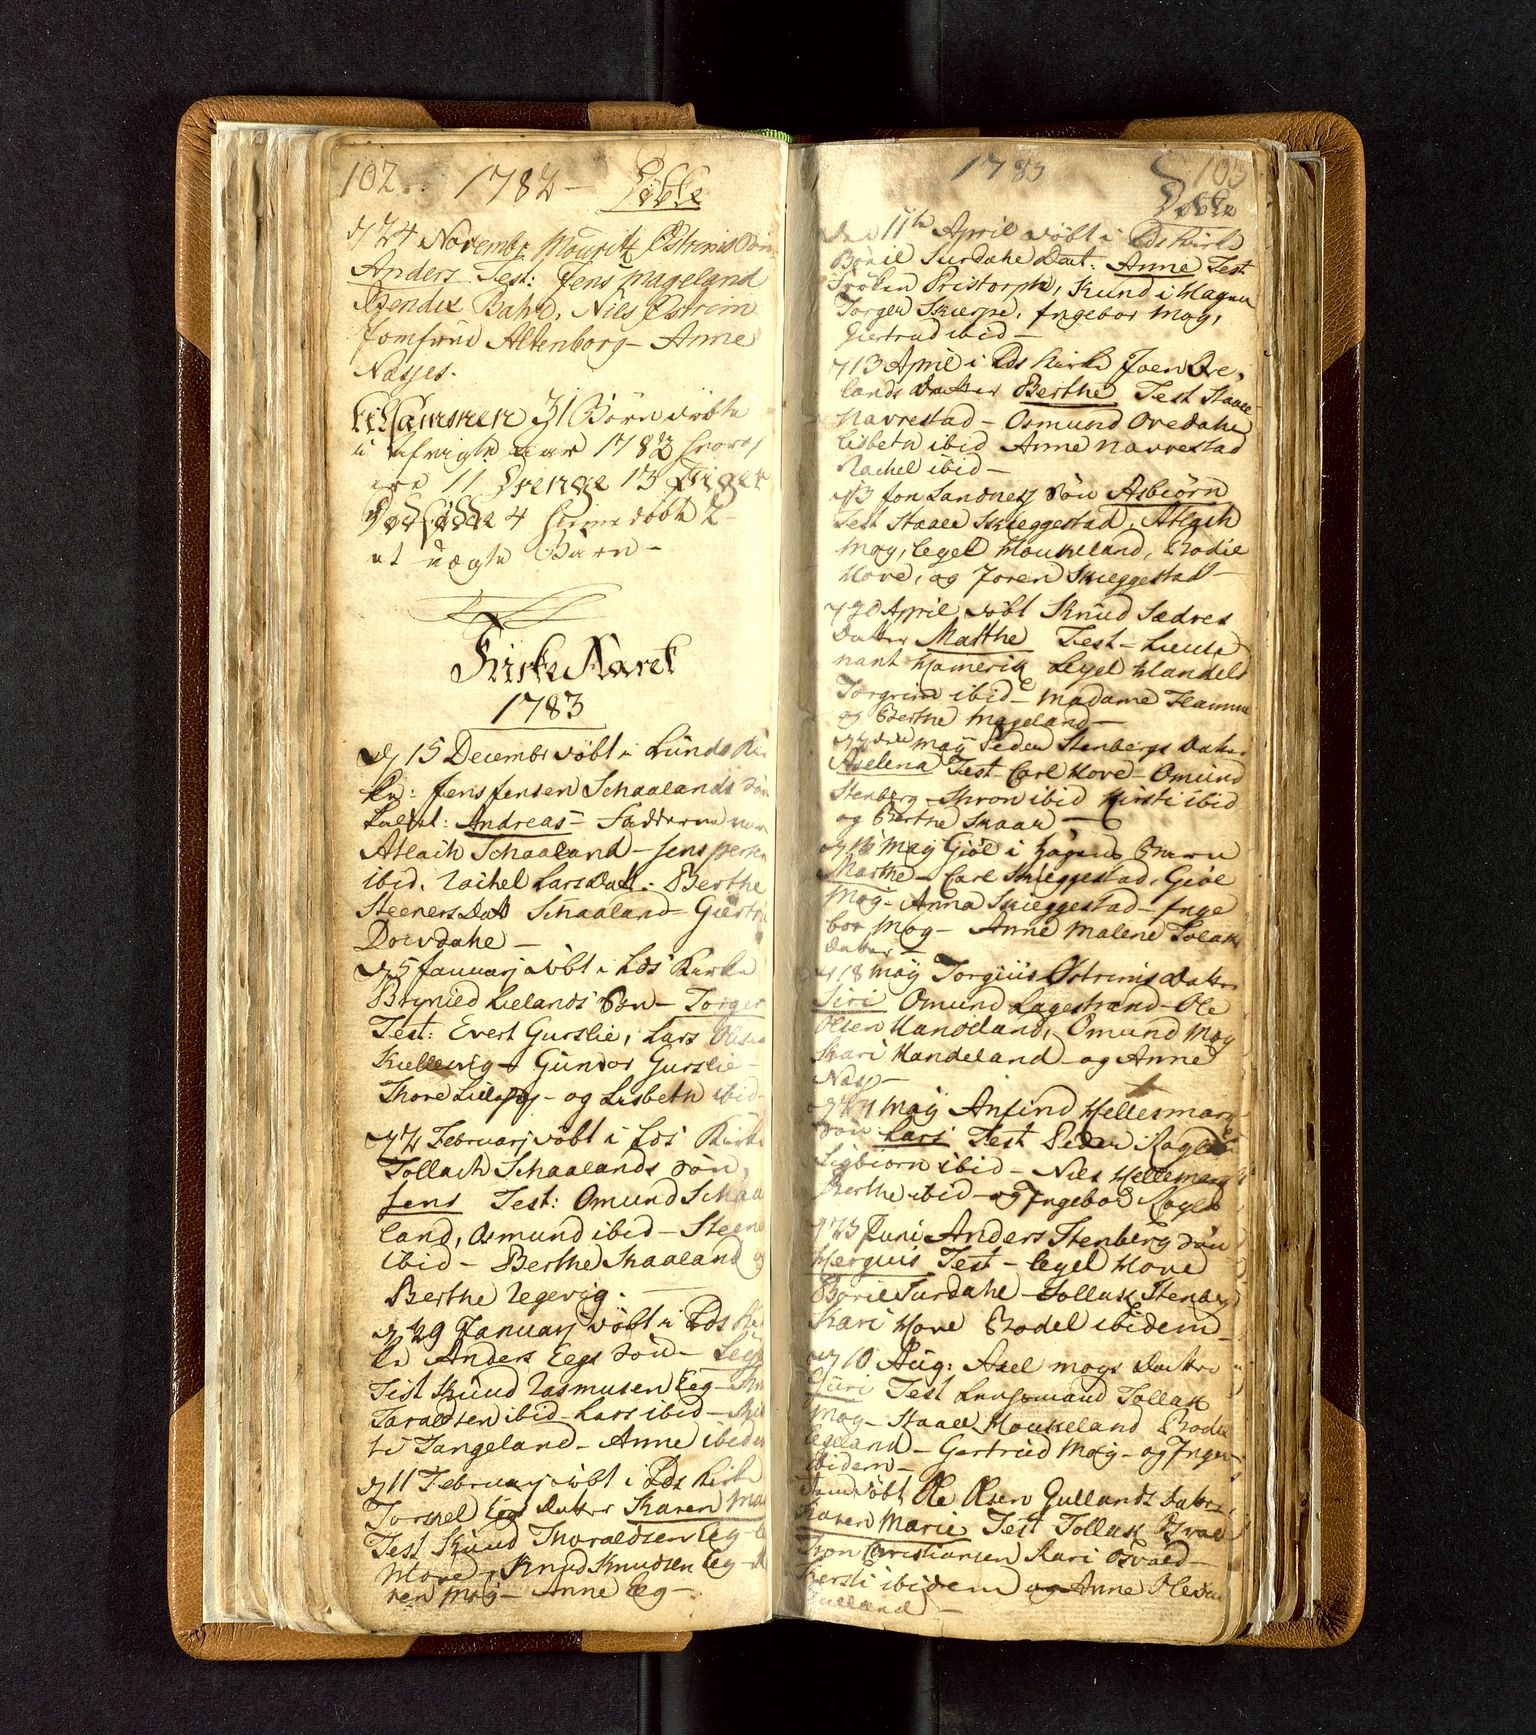 102. 1782 - Døbte
d 24 Novembr Mouritz Østrims Søn
Anders Test: Jens Mageland
Bendix Bahr, Niels Østrim
Jomfrue Altenborg - Anne
Nasjes.
tilsammen 31 Børn døbte
i afvigte aar 1782 hvoraf
ere 11 Drenge 13 Piger
Dødfødde 4 hiemedøbte 2
et uægte Barn -
Kirke Aaret
1783
d 15 Decembr døbt i Lunds Kir
ke: Jens Jensen Schaalands Søn
kaldet: Andreas - Fadderne var
Atlach Schaaland - Jens Persen
ibid. Rachel Larsdatt: Berthe
Steeners Datt Schaaland - Giertru
Dorvdahl -
d 5 Januarj døbt i Eds Kirke
Bryniel Lielands Søn - Torger
Test: Evert Gurslie, Lars Olsen
Kiellevig - Gunvor Gurslie -
Thore - og Lisbeth ibid
d 2 Februarj døbt i Eds Kirke
Tollach Schaalands Søn,
Jens Test: Omund Schaa
land, Osmund ibid - Steen
ibid - Berthe Skaaland og
Berthe Regevig. -
d 29 Januarj døbt i Eds Kir
ke Anders Eegs Søn -
Test Knud Rasmusen Eeg -
Taraldsen ibid - Lars ibid -
te Tangeland - Anne ibidem
d 11 Februarj døbt i Eds Kirke
Torkel Eegs Datter Karen Ma
Test Knud Thoraldsen Eeg -
Hove, Knud Knudsen Eeg -
ren Moy - Anne Eeg -
1783 103
Døbte
11te April døbt i Eds Kirke
Børil Surdahls Dat: Anne Test
Frøken Pristorph, Knud i Hagen
Torger Skierpe, Ingebor Moy,
Giertrud ibid -
d 13 April i Eds Kirke Joen Ove,
lands Datter Berthe Test Staale
Navrestad - Osmund Ovedahl
Lisbeth ibid Anne Navrestad
Rachel ibid -
d 13 Jon Sandnes Søn Asbiørn
Test Staale Skieggestad, Atlach
Moy, Eegel Houkeland, Bodil
Hove, og Joren Skieggestad -
d 20 April døbt Knud Sædres
Datter Marthe Test - Lieute
nant Hamerik Eegel Handeld
Torgrim ibid - Madame Flamme
og Berthe Mageland -
Maij Peder Stenbergs Datter
Axelena Test - Carl Hove - Omund
Stenberg - Thron ibid Kirsti ibid
og Berthe Skaar -
d Maij Giøe i Hagens
Marthe - Carl Skieggestad, Giøe
Moy - Anna Skieggestad - Inge
bor Moy - Anne Malene Tolak
Datter -
d 18 Maij Torgiuls Østrims Datter
Siri Omund Lagestrand - Ole
Olsen Handeland, Omund Moy
Kari Handeland - og Anne
Næs -
Maij Anfind Hellesmark
Søn Lars Test Peder Rogle
Sigbiorn ibid - Niels Hellesmark
Berthe ibid - og Ingebor Rogle
d 23 Juni Anders Stenberg Søn
Hergius Test - Eegel Hove
Børil Surdahl - Tollak Stenberg
Kari Hove Bodel ibidem -
d 10 Aug: Axel Moys Datter
Guri Test Tollak
Moy - Staale Houkeland Bodil
Egeland - Gertrud Moy - og Inger
ibidem -
døbt Ole Olsen Gullands Datter
Karen Marie Test Tollak Osvae
Thron Christiansen Kari Osvaed -
Kersti ibidem og Anne Olsdat
Gulland -